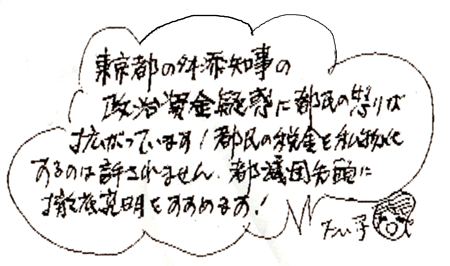 東京都の舛添知事の
政治資金疑惑に都民の怒りが
拡がっています！都民の税金を私物化
するのは許されません。都議団先頭に
徹底究明をすすめます！
たい子